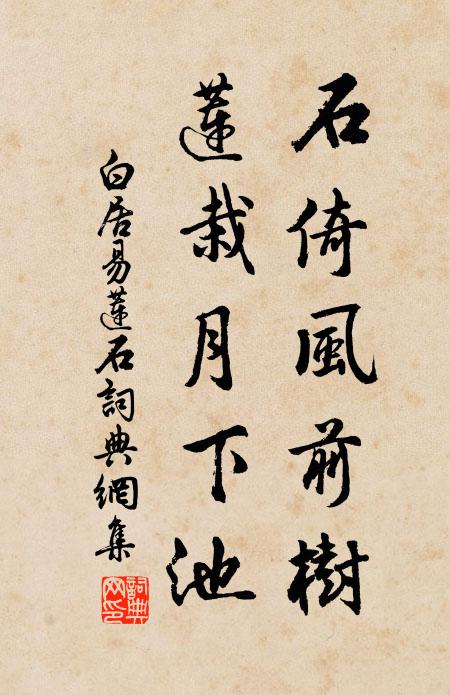 石倚風前樹
蓮栽月下池
白居易蓮石詞典網集
詞典網印